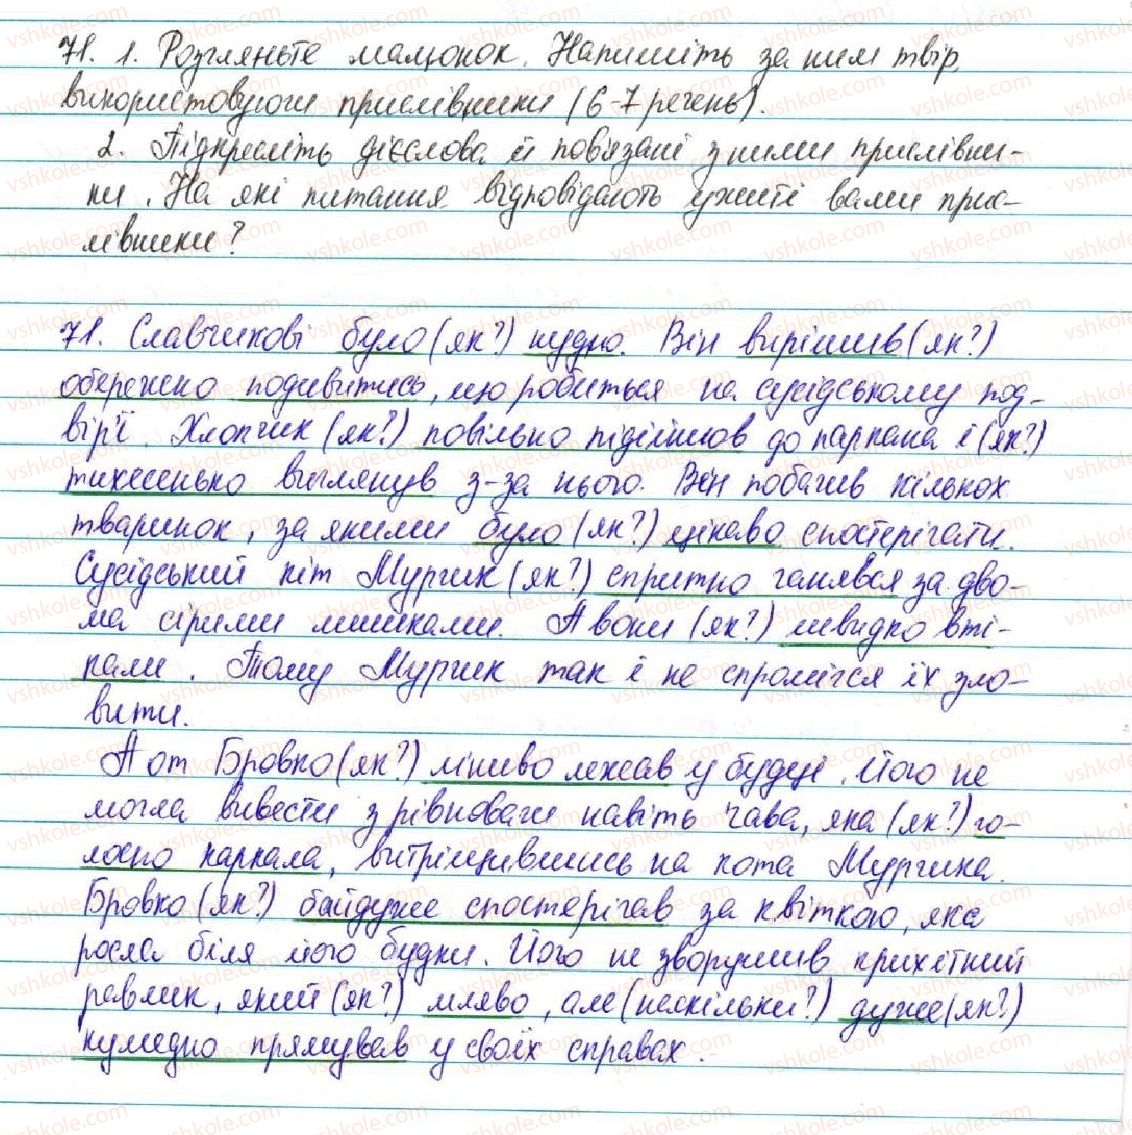 71. 1. Розгляньте малюнок. Напишіть за ним твір,
використовуючи прислівники (6-7 речень).
2. Підкресліть дієслова й пов'язані з ними прислівни-
ки. На які питання відповідають ужиті вами прис-
лівники?
71. Славчикові було (як?) нудно. Він вирішив (як?)
обережно подивитись, що робиться на сусідському под-
вір'ї. Хлопчик (як?) повільно підійшов до паркана і (як?)
тихесенько виглянув з-за нього. Він побачив кількох
тваринок, за якими було (як?) цікаво спостерігати.
Сусідський кіт Мурчик (як?) спритно ганявся за дво-
ма сірими мишками. А вони (як?) швидко вті-
кали. Тому Мурчик так і не спромігся їх зло-
вити.
А от Бровко (як?) ліниво лежав у будці. Його не
могла вивести з рівноваги навіть ґава, яка (як?) го-
лосно каркала, витріщившись на кота Мурчика.
Бровко (як?) байдуже спостерігав за квіткою, яка
росла біля його будки. Його не зворушив крихітний
равлик, який (як?) мляво, але (наскільки?) дуже (як?)
кумедно прямував у своїх справах.